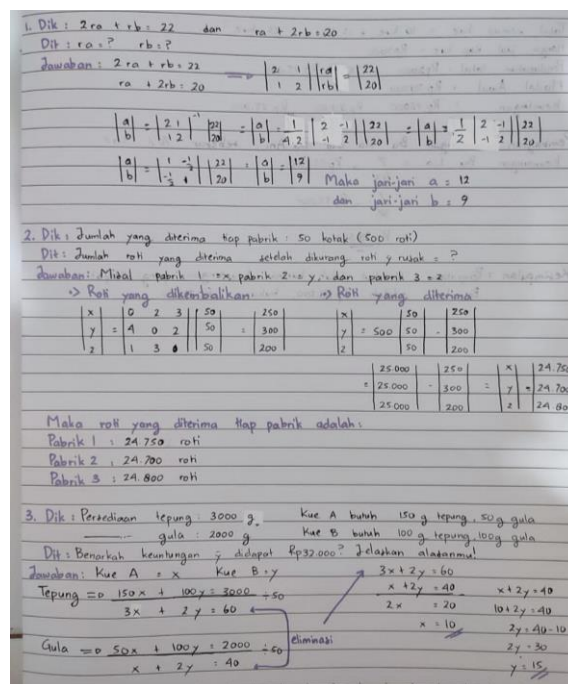 1. Dik : 2ra + rb = 22 dan ra + 2rb = 20
Dit : ra = ? rb = ?
Jawaban : 2ra + rb = 22
ra + 2rb = 20
|2 1| |ra| = |22|
|1 2| |rb| |20|
|a| = |2 1|⁻¹ |22| = |a| = 1/4-2 |2 -1| |22| = |a| = 1/2 |2 -1| |22|
|b| |1 2| |20| |b| |-1 2| |20| |b| |-1 2| |20|
|a| = |1 -1/2| |22| = |a| = |12|
|b| |-1/2 | |20| |b| |9|
Maka jari-jari a = 12
dan jari-jari b = 9
2. Dik : Jumlah yang diterima tiap pabrik : 50 kotak (500 roti)
Dit : Jumlah roti yang diterima setelah dikurang roti y rusak = ?
Jawaban : Misal pabrik 1 = x, pabrik 2 = y, dan pabrik 3 = z
•> Roti yang dikembalikan
|x| |0 2 3| |50| |250|
|y| = |4 0 2| |50| = |300|
|z| |1 3 | |50| |200|
•> Roti yang diterima :
|x| |50| |250|
|y| = 500 |50| - |300|
|z| |50| |200|
|25.000| |250| |x| |24.750
= |25.000| - |300| = |y| = |24.700
|25.000| |200| |z| |24.800
Maka roti yang diterima tiap pabrik adalah :
Pabrik 1 : 24.750 roti
Pabrik 2 : 24.700 roti
Pabrik 3 : 24.800 roti
3. Dik : Persediaan tepung : 3000 g. Kue A butuh 150 g tepung, 50 g gula
gula : 2000 g Kue B butuh 100 g tepung, 100 g gula
Dit : Benarkah keuntungan y didapat Rp32.000? Jelaskan alasanmu!
Jawaban : Kue A = x Kue B = y
Tepung => 150x + 100y = 3000 ÷50
3x + 2y = 60
Gula => 50x + 100y = 2000 ÷50
x + 2y = 40
eliminasi
3x + 2y = 60
x + 2y = 40
2x = 20
x = 10
x + 2y = 40
10 + 2y = 40
2y = 40 - 10
2y = 30
y = 15